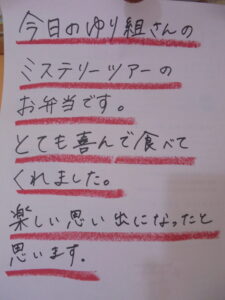 今日のゆり組さんの
ミステリーツアーの
お弁当です。
とても喜んで食べて
くれました。
楽しい思い出になったと
思います.